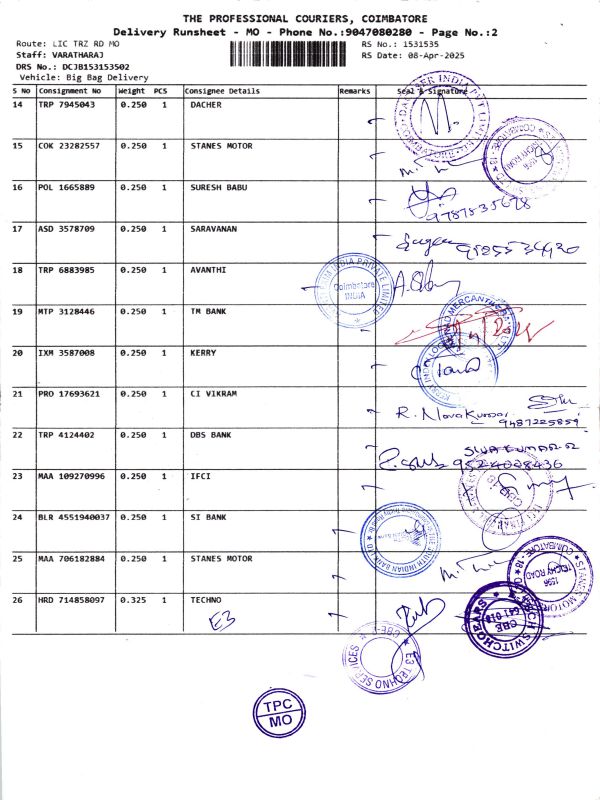 THE PROFESSIONAL COURIERS, COIMBATORE
Delivery Runsheet - MO - Phone No.:9047080280 - Page No.:2
Route: LIC TRZ RD MO RS No.: 1531535
Staff: VARATHARAJ RS Date: 08-Apr-2025
DRS No.: DCJB153153502
Vehicle: Big Bag Delivery
S No Consignment No Weight PCS Consignee Details Remarks Seal & Signature
14 TRP 7945043 0.250 1 DACHER
15 COK 23282557 0.250 1 STANES MOTOR
16 POL 1665889 0.250 1 SURESH BABU
9787535678
17 ASD 3578709 0.250 1 SARAVANAN
18 TRP 6883985 0.250 1 AVANTHI
Coimbatore
INDIA
19 MTP 3128446 0.250 1 TM BANK
20 IXM 3587008 0.250 1 KERRY
21 PRO 17693621 0.250 1 CI VIKRAM
R. Nava Kumar
9487225859
22 TRP 4124402 0.250 1 DBS BANK
SIVA KUMAR R
9524028436
23 MAA 109270996 0.250 1 IFCI
24 BLR 4551940037 0.250 1 SI BANK
25 MAA 706182884 0.250 1 STANES MOTOR
STANES MOTOR
1596
TRICHY ROAD
COIMBATORE - 18
26 HRD 714858097 0.325 1 TECHNO
E3
CBE
641 018
E3 TECHNO SERVICES
CBE-
TPC
MO